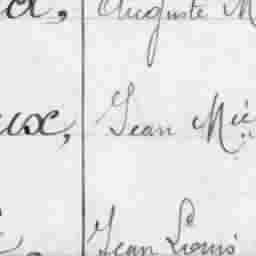 Auguste M
ux, Jean Mic
Jean Louis